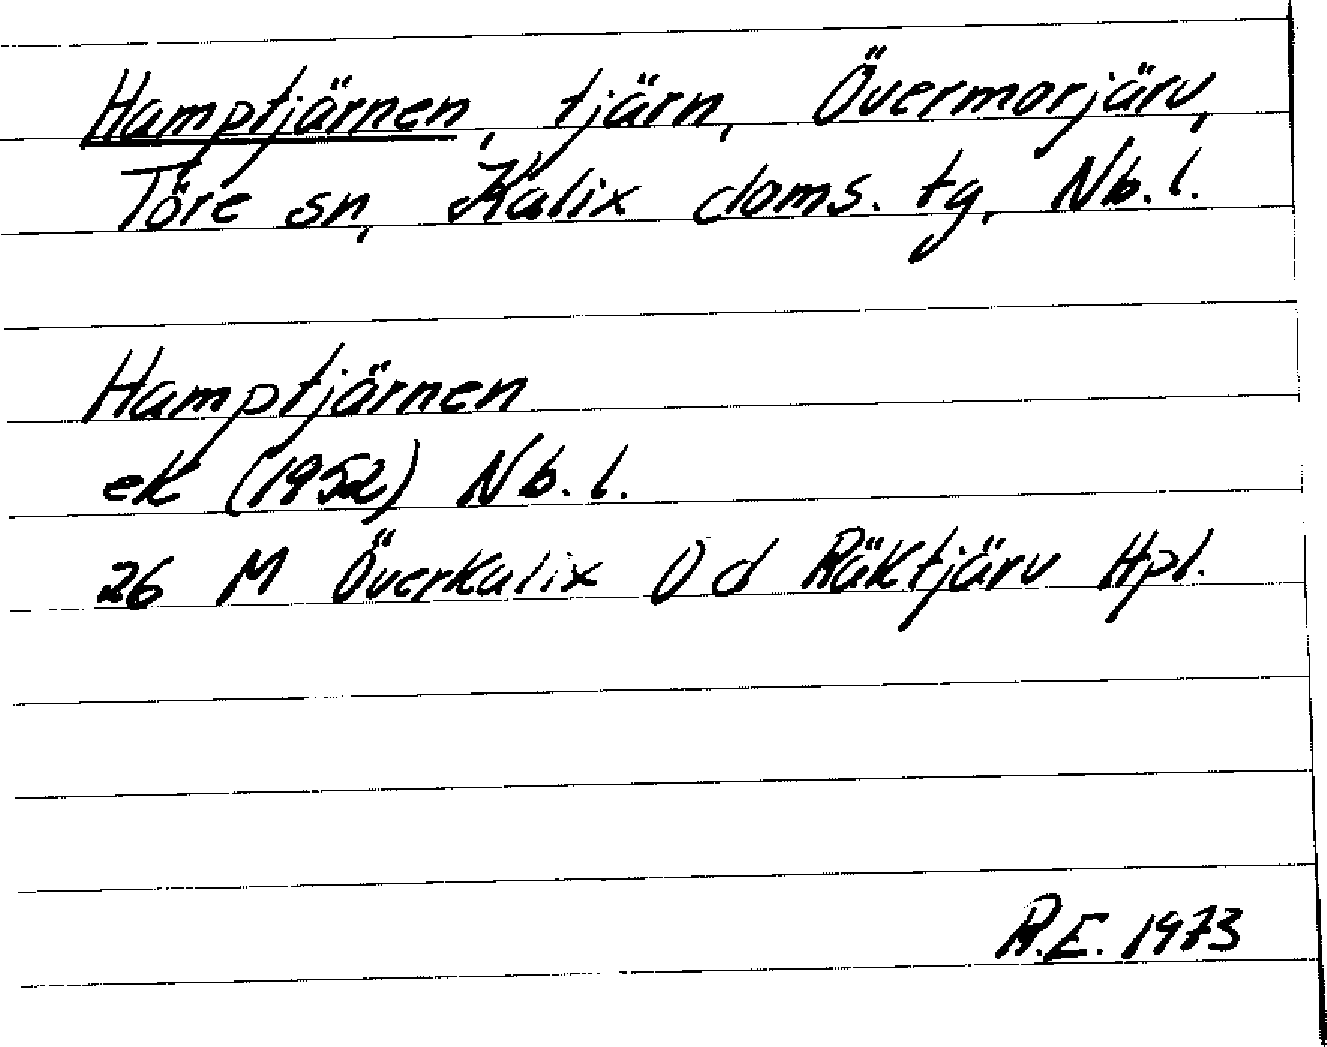 Hamptjärnen, tjärn, Övermorjärv,
Töre sn, Kalix doms. tg, Nb. l.
Hamptjärnen
ek (1952) Nb. l.
26 M Överkalix 0 d Räktjärv Hpl.
R.E. 1973